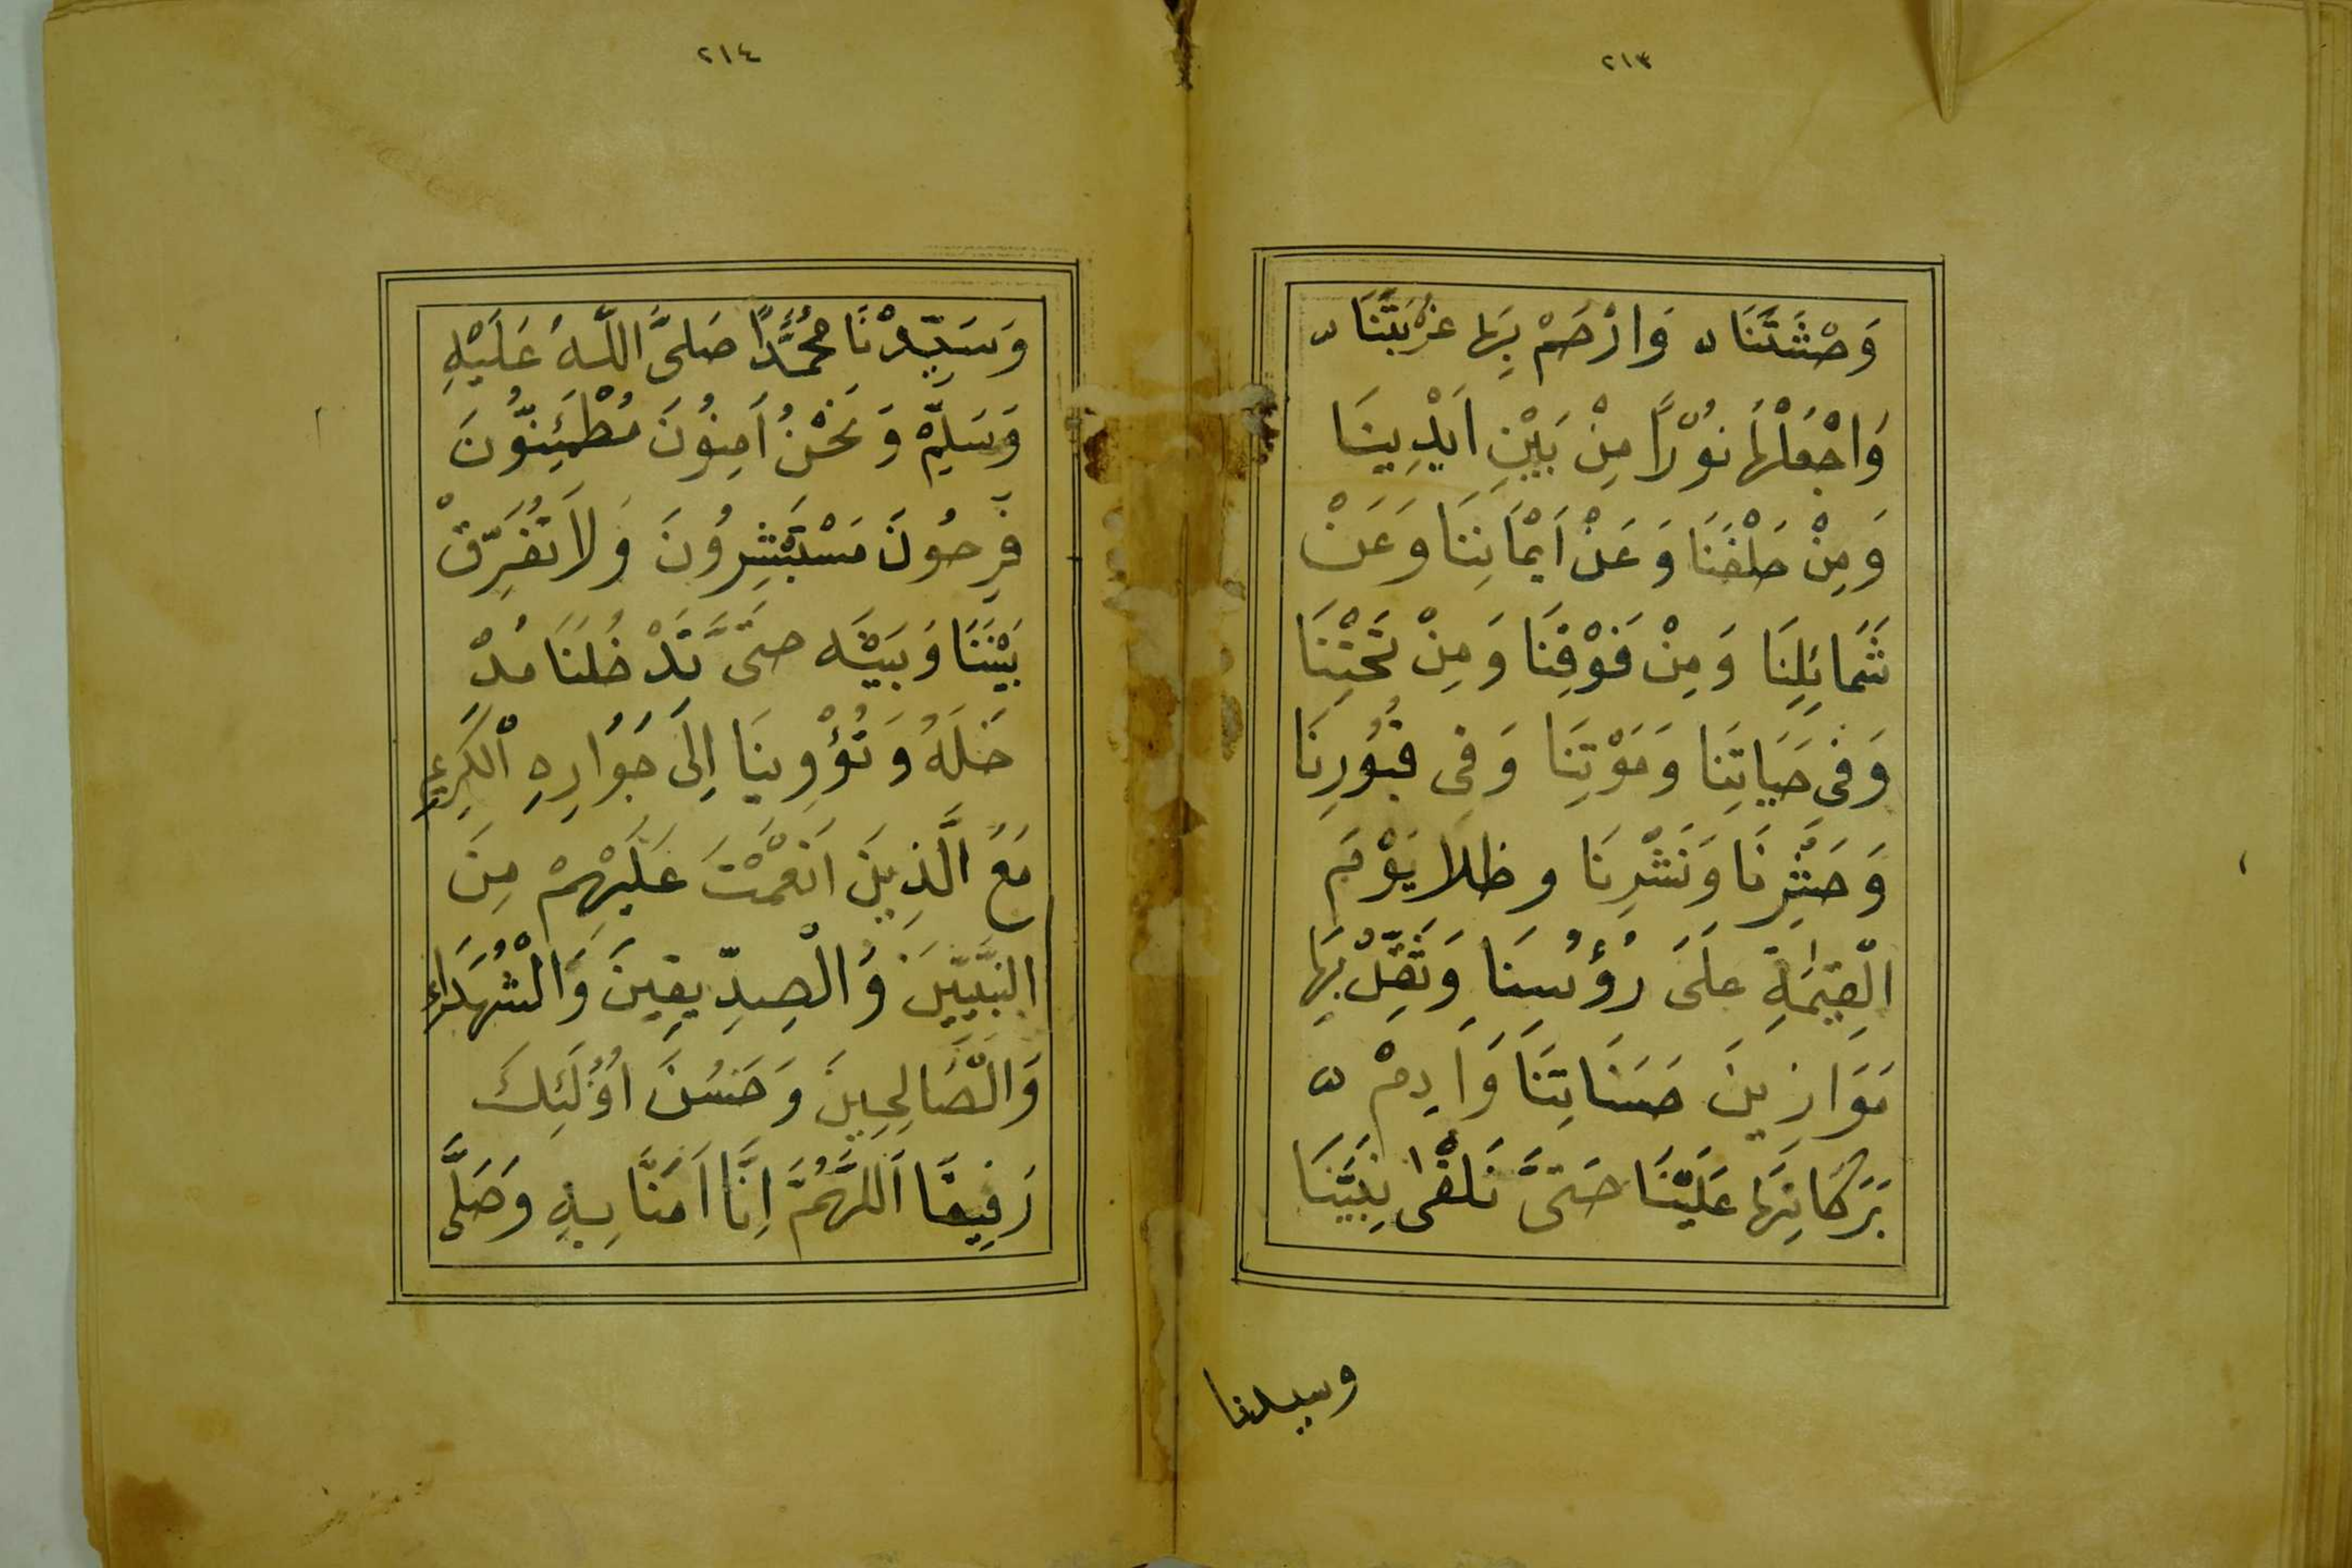 ٢١٣
وَحْشَتَنَا وَارْحَمْ بِهَا غُرْبَتَنَا
وَاجْعَلْهَا نُوْرًا مِنْ بَيْنِ اَيْدِينَا
وَمِنْ خَلْفَنَا وَعَنْ اَيْمَانِنَا وَعَنْ
شَمَائِلِنَا وَمِنْ فَوْقِنَا وَمِنْ تَحْتِنَا
وَفِي حَيَاتِنَا وَمَوْتِنَا وَفِي قُبُوْرِنَا
وَحَشْرِنَا وَنَشْرِنَا وظلا يَوْمَ
الْقِيٰمَةِ عَلَى رُؤُسِنَا وَثَقِّلْ بِهَا
مَوَازِينَ حَسَنَاتِنَا وَاَدِمْ
بَرَكَاتِهَا عَلَيْنَا حَتَّى نَلْقٰى نَبِيَّنَا
وسيدنا
٢١٤
وَسَيِّدْنَا مُحَمَّدًا صَلَّى اللّهُ عَلَيْهِ
وَسَلِّمْ وَنَحْنُ اَمِنُونَ مُطْمَئِنُّونَ
فَرِحُونَ مَسْتَبْشِرُونَ وَلَا تُفَرِّقْ
بَيْنَنَا وَبَيْنَه حتَّى تَدْخُلَنَا مُدْ
خَلَهُ وَتُؤْوِينَا اِلَى جَوَارِهِ الْكَرِيمِ
مَعَ الَّذِينَ اَنْعَمْتَ عَلَيْهِمْ مِنَ
النَّبِيِّينَ وَالْصِدِّيقِينَ وَالْشُهَدَاءِ
وَالْصَّالِحِينَ وَحَسُنَ اوُلَئِكَ
رَفِيقًا اَللَّهُمَّ اِنَّا اَمَنَّا بِهِ وَصَلَّى